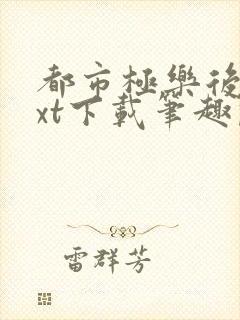 都市極樂後
xt下載筆趣
雷群芳